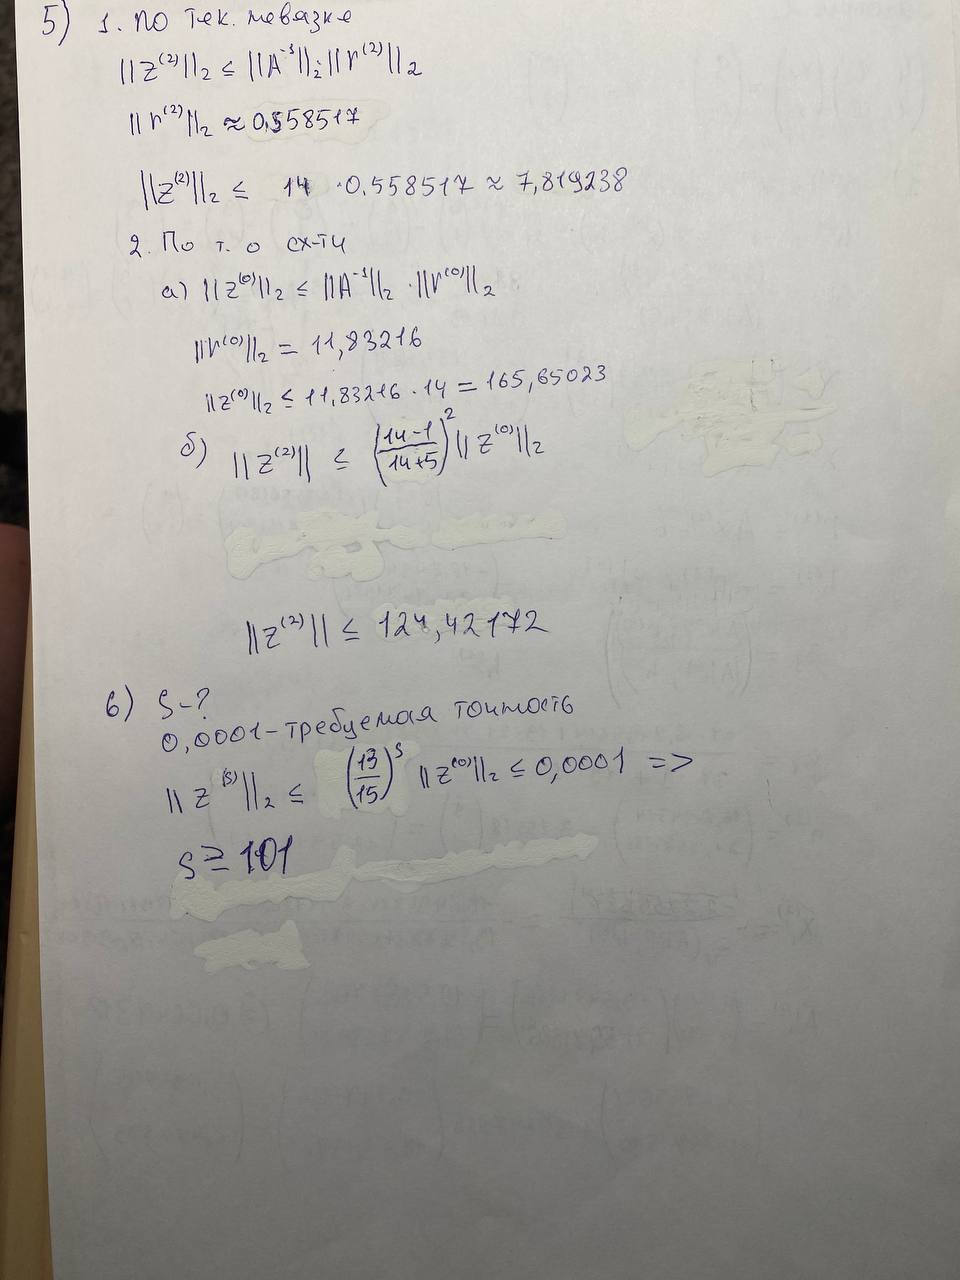 5) 1. по тек. невязке
||z⁽²⁾||₂ ≤ ||A⁻¹||₂·||r⁽²⁾||₂
||r⁽²⁾||₂ ≈ 0,558517
||z⁽²⁾||₂ ≤ 14 · 0.558517 ≈ 7,819238
2. По т. о сх-ти
а) ||z⁽⁰⁾||₂ ≤ ||A⁻¹||₂ · ||r⁽⁰⁾||₂
||r⁽⁰⁾||₂ = 11,83216
||z⁽⁰⁾||₂ ≤ 11,83216 · 14 = 165,65023
б) ||z⁽²⁾|| ≤ ((14-1)/(14+5))² ||z⁽⁰⁾||₂
||z⁽²⁾|| ≤ 124,42172
в) S-?
0,0001 - требуемая точность
||z⁽ˢ⁾||₂ ≤ (13/15)ˢ ||z⁽⁰⁾||₂ ≤ 0,0001 =>
s ≥ 101